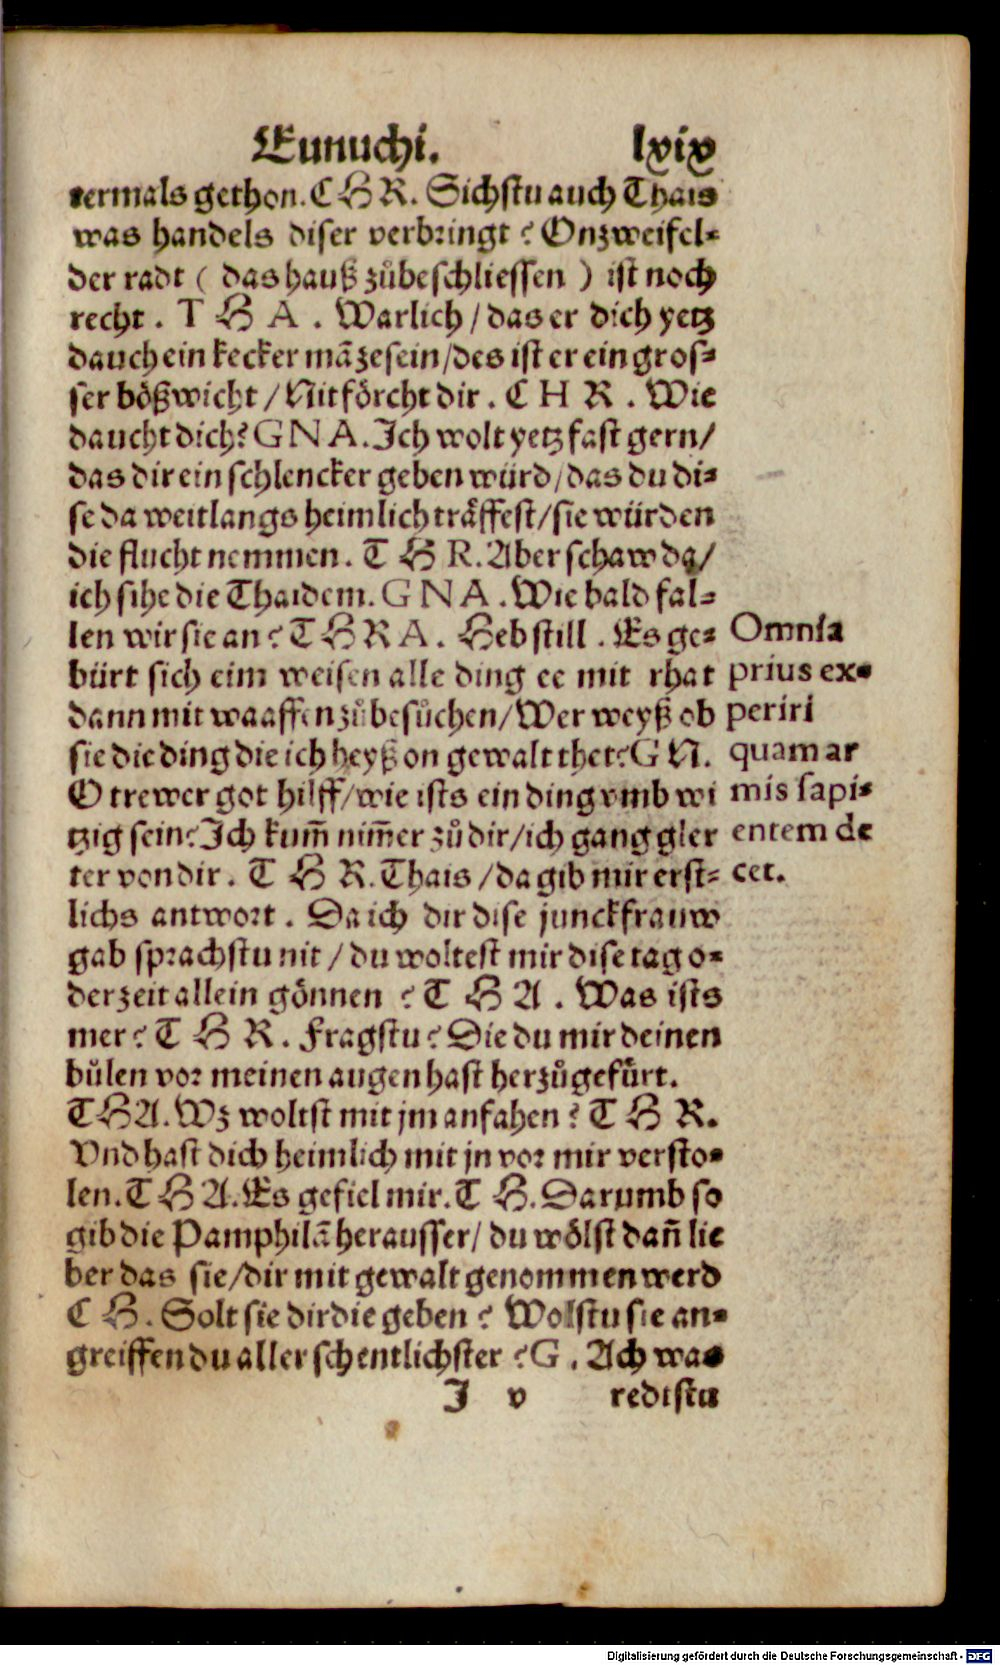 Eunuchi. lxix
termals gethon. CHR. Sichstu auch Thais
was handels diser verbringt? Onzweifel-
der radt ( das hauß zůbeschliessen ) ist noch
recht. THA. Warlich / das er dich yetz
dauch ein kecker mãzesein / des ist er ein gros-
ser bößwicht / Nit förcht dir. CHR. Wie
daucht dich? GNA. Ich wolt yetz fast gern /
das dir ein schlencker geben würd / das du di-
se da weitlangs heimlich träffest / sie würden
die flucht nemmen. THR. Aber schaw da /
ich sihe die Thaidem. GNA. Wie bald fal-
len wir sie an? THRA. Heb still. Es ge-
bürt sich eim weisen alle ding ee mit rhat
dann mit waaffen zůbesůchen / Wer weyß ob
sie die ding die ich heyß on gewalt thet? GN.
O trewer got hilff / wie ists ein ding vmb wi
tzig sein? Ich kum̃ nim̃er zů dir / ich gang gler
ter von dir. THR. Thais / da gib mir erst-
lichs antwort. Da ich dir dise junckfrauw
gab sprachstu nit / du woltest mir dise tag o-
der zeit allein gönnen? THA. Was ists
mer? THR. Fragstu? Die du mir deinen
bůlen vor meinen augen hast herzůgefürt.
THA. Wz woltst mit jm anfahen? THR.
Vnd hast dich heimlich mit jn vor mir versto-
len. THA. Es gefiel mir. TH. Darumb so
gib die Pamphilã herausser / du wölst dañ lie
ber das sie / dir mit gewalt genommen werd
CH. Solt sie dir die geben? Wolstu sie an-
greiffen du aller schentlichster? G. Ach was
J v redistu
Omnia
prius ex-
periri
quam ar
mis sapi-
entem de
cet.
Digitalisierung gefördert durch die Deutsche Forschungsgemeinschaft - DFG